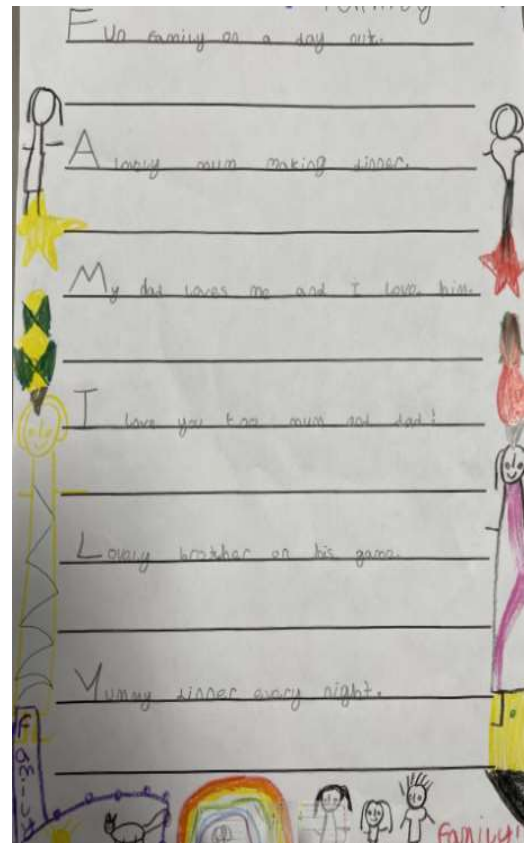 Fun family on a day out.
A lovely mum making dinner.
My dad loves me and I love him.
I love you too mum and dad!
Lovely brotcher on his game.
Yummy dinner every night.
family
family!